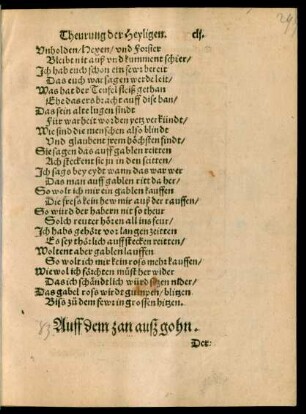 Theurung der Heyligen. clj.
Vnholden/ Hexen/ vnd Forster
Bleibt nit auß vnd kumment schier/
Ich hab euch schon ein fewr bereit
Das euch war sagen werde leit/
Was hat der Teufel fleiß gethan
Ehe das ers bracht auff dise ban/
Das sein alte lugen sindt
Für warheit worden yetz verkündt/
Wie sind die menschen also blindt
Vnd glaubent jrem höchsten findt/
Sie sagen das auff gablen reitten
Ach steckent sie jn in den seitten/
Ich sags bey eydt wann das war wer
Das man auff gablen ritt da her/
So wolt ich mir ein gablen kauffen
Die fress kein hew mir auß der rauffen/
So würd der habern nit so theur
Solch reuter hören all ins feur/
Ich habs gehört vor langen zeitten
Es sey thörlich auff stecken reitten/
Woltent aber gablen lauffen
So wolt ich mir kein ross meht kauffen/
Wiewol ich förchten müst her wider
Das ich schändtlich würd sitzen nider/
Das gabel ross wirdt gumpen/ blitzen
Biss zů dem fewr in grossen hitzen.
Auff dem zan auß gohn.
Der